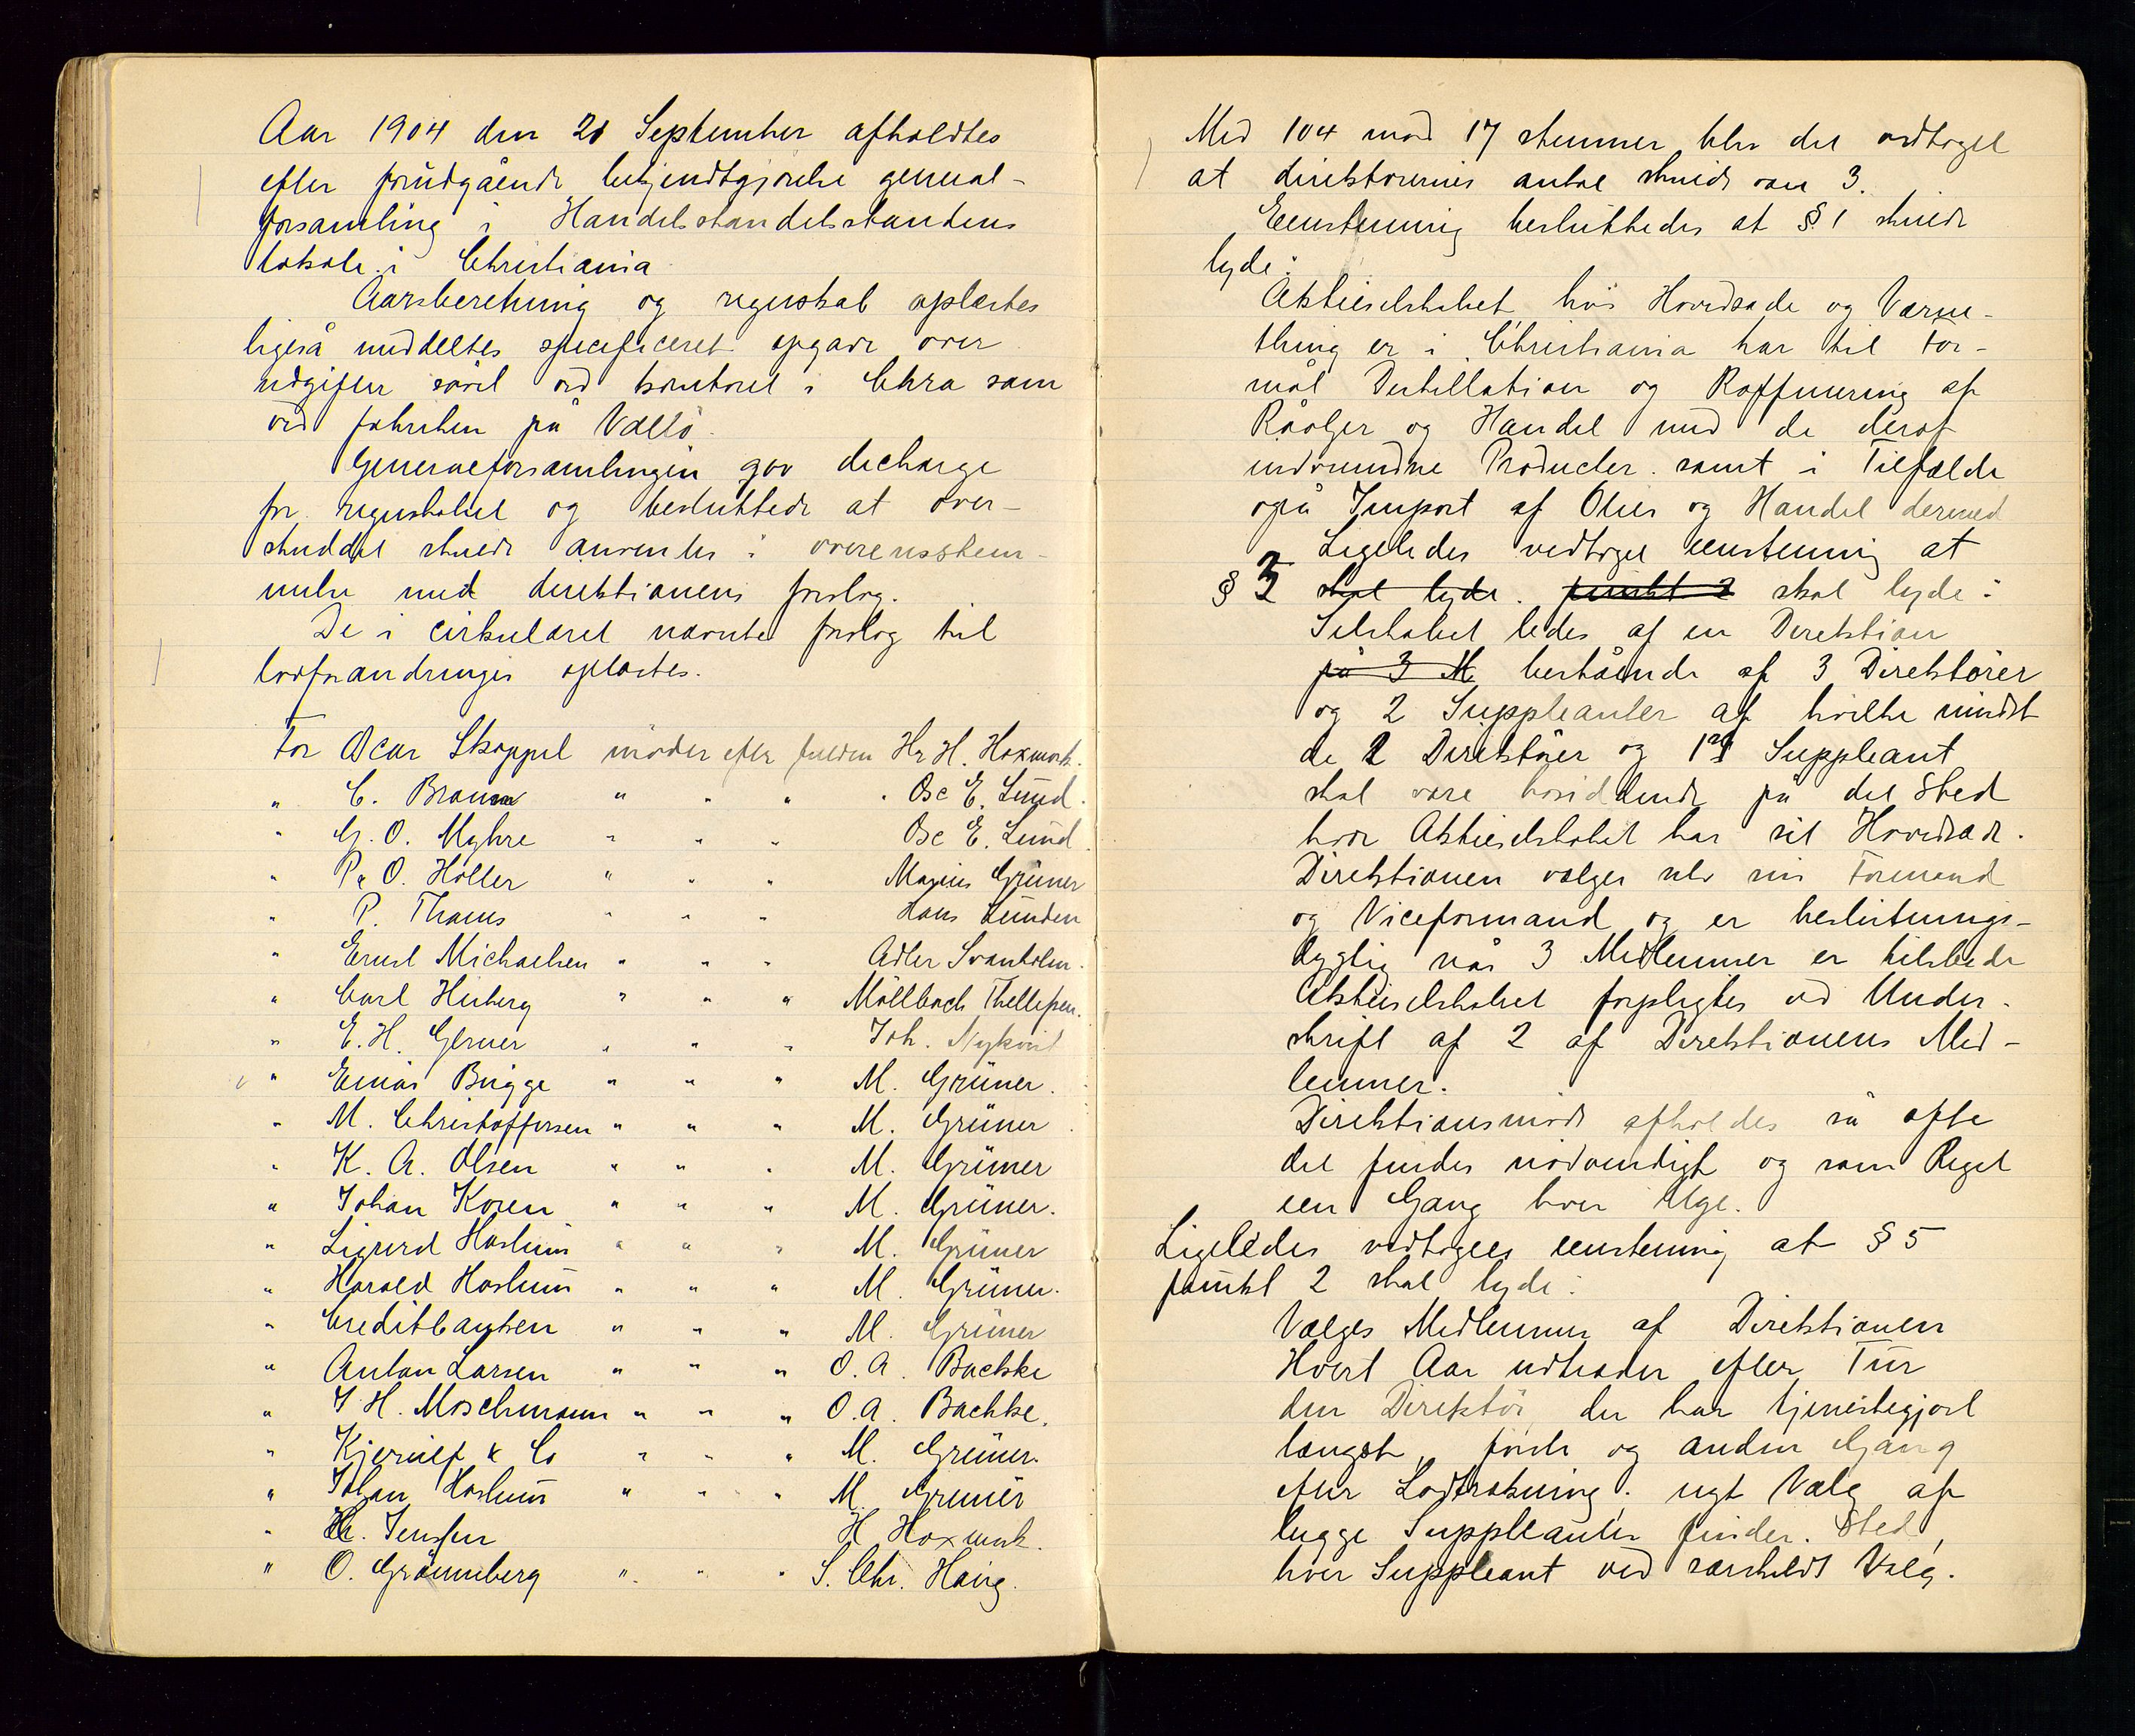 Aar 1904 den 21 September afholdtes
efter forudgående bekjendtgjörelse general-
forsamling i Handelsstandelsstandens
lokale i Christiania
Aarsberetning og regnskab oplæstes
ligeså meddeltes specificeret opgave over
udgifter såvel ved kontoret i Chra som
ved fabriken på Vallö.
Generalforsamlingen gav decharge
for regnskabet og besluttede at over-
skuddet skulde anvendes i overensstem-
melse med direktionens forslag.
De i cirkulæret nævnte forslag til
lovforandringer oplæstes.
For Oscar Skoppel möder efter fuldm Hr H. Hoxmark.
" C. Braum " " " Osc E. Lund.
" G. O. Myhre " " " Osc E. Lund
" P. O. Holler " " " Magnus Grüner
" P. Thams " " " Hans Lunden
" Ernst Michaelsen " " " Adler Svanholm.
" Carl Heiberg " " " Möllbach Thellefsen.
" E. H. Gerner " " " Joh. Nykvist
" Einar Brigge " " " M. Grüner.
" M. Christoffersen " " " M. Grüner
" K. A. Olsen " " " M. Grüner
" Johan Koren " " " M. Grüner.
" Sigurd Haslum " " " M. Grüner
" Harald Haslum " " " M. Grüner.
" Creditbanken " " " M. Grüner
" Anton Larsen " " " O. A. Bachke
" J H. Moschmann " " " O. A. Bachke.
" Kjerulf & Co " " " M. Grüner.
" Johan Haslum " " " M. Grüner
" Jensen H Hoxmark.
" O. Grönneberg " " " S. Chr. Haug.
Med 104 mod 17 stemmer blev det vedtaget
at direktörernes antal skulde være 3.
Eenstemmig besluttedes at § 1 skulde
lyde:
Aktieselskabet hvis Hovedsæde og Værne-
thing er i Christiania har til For-
mål Destillation og Raffinering af
Råoljer og Handel med de deraf
indvundne Producter samt i Tilfælde
også Import af Olier og Handel dermed
Ligeledes vedtoges eenstemmig at
§ 3 skal lyde. punkt 2 skal lyde:
Selskabet ledes af en Direktion
på 3 M bestående af 3 Direktörer
og 2 Suppleanter af hvilke mindst
de 2 Direktörer og 1 Suppleant
skal være bosiddende på det Sted
hvor Aktieselskabet har sit Hovedsæde.
Direktionen vælger selv sin Formand
og Viceformand og er beslutnings-
dygtig når 3 Medlemmer er tilstede
Aktieselskabet forpligtes ved Under-
skrift af 2 af Direktionens Med-
lemmer.
Direktionsmöde afholdes så ofte
det findes nödvendigt og som Regel
een Gang hver Uge.
Ligeledes vedtoges eenstemmig at § 5
punkt 2 skal lyde:
Vælges Medlemmer af Direktionen
Hvert Aar udtræder efter Tur
den Direktör, der har tjenestegjort
længst, förste og anden Gang
efter Lodtrækning. nyt Valg af
begge Suppleanter finder Sted,
hver Suppleant ved særskildt Valg.